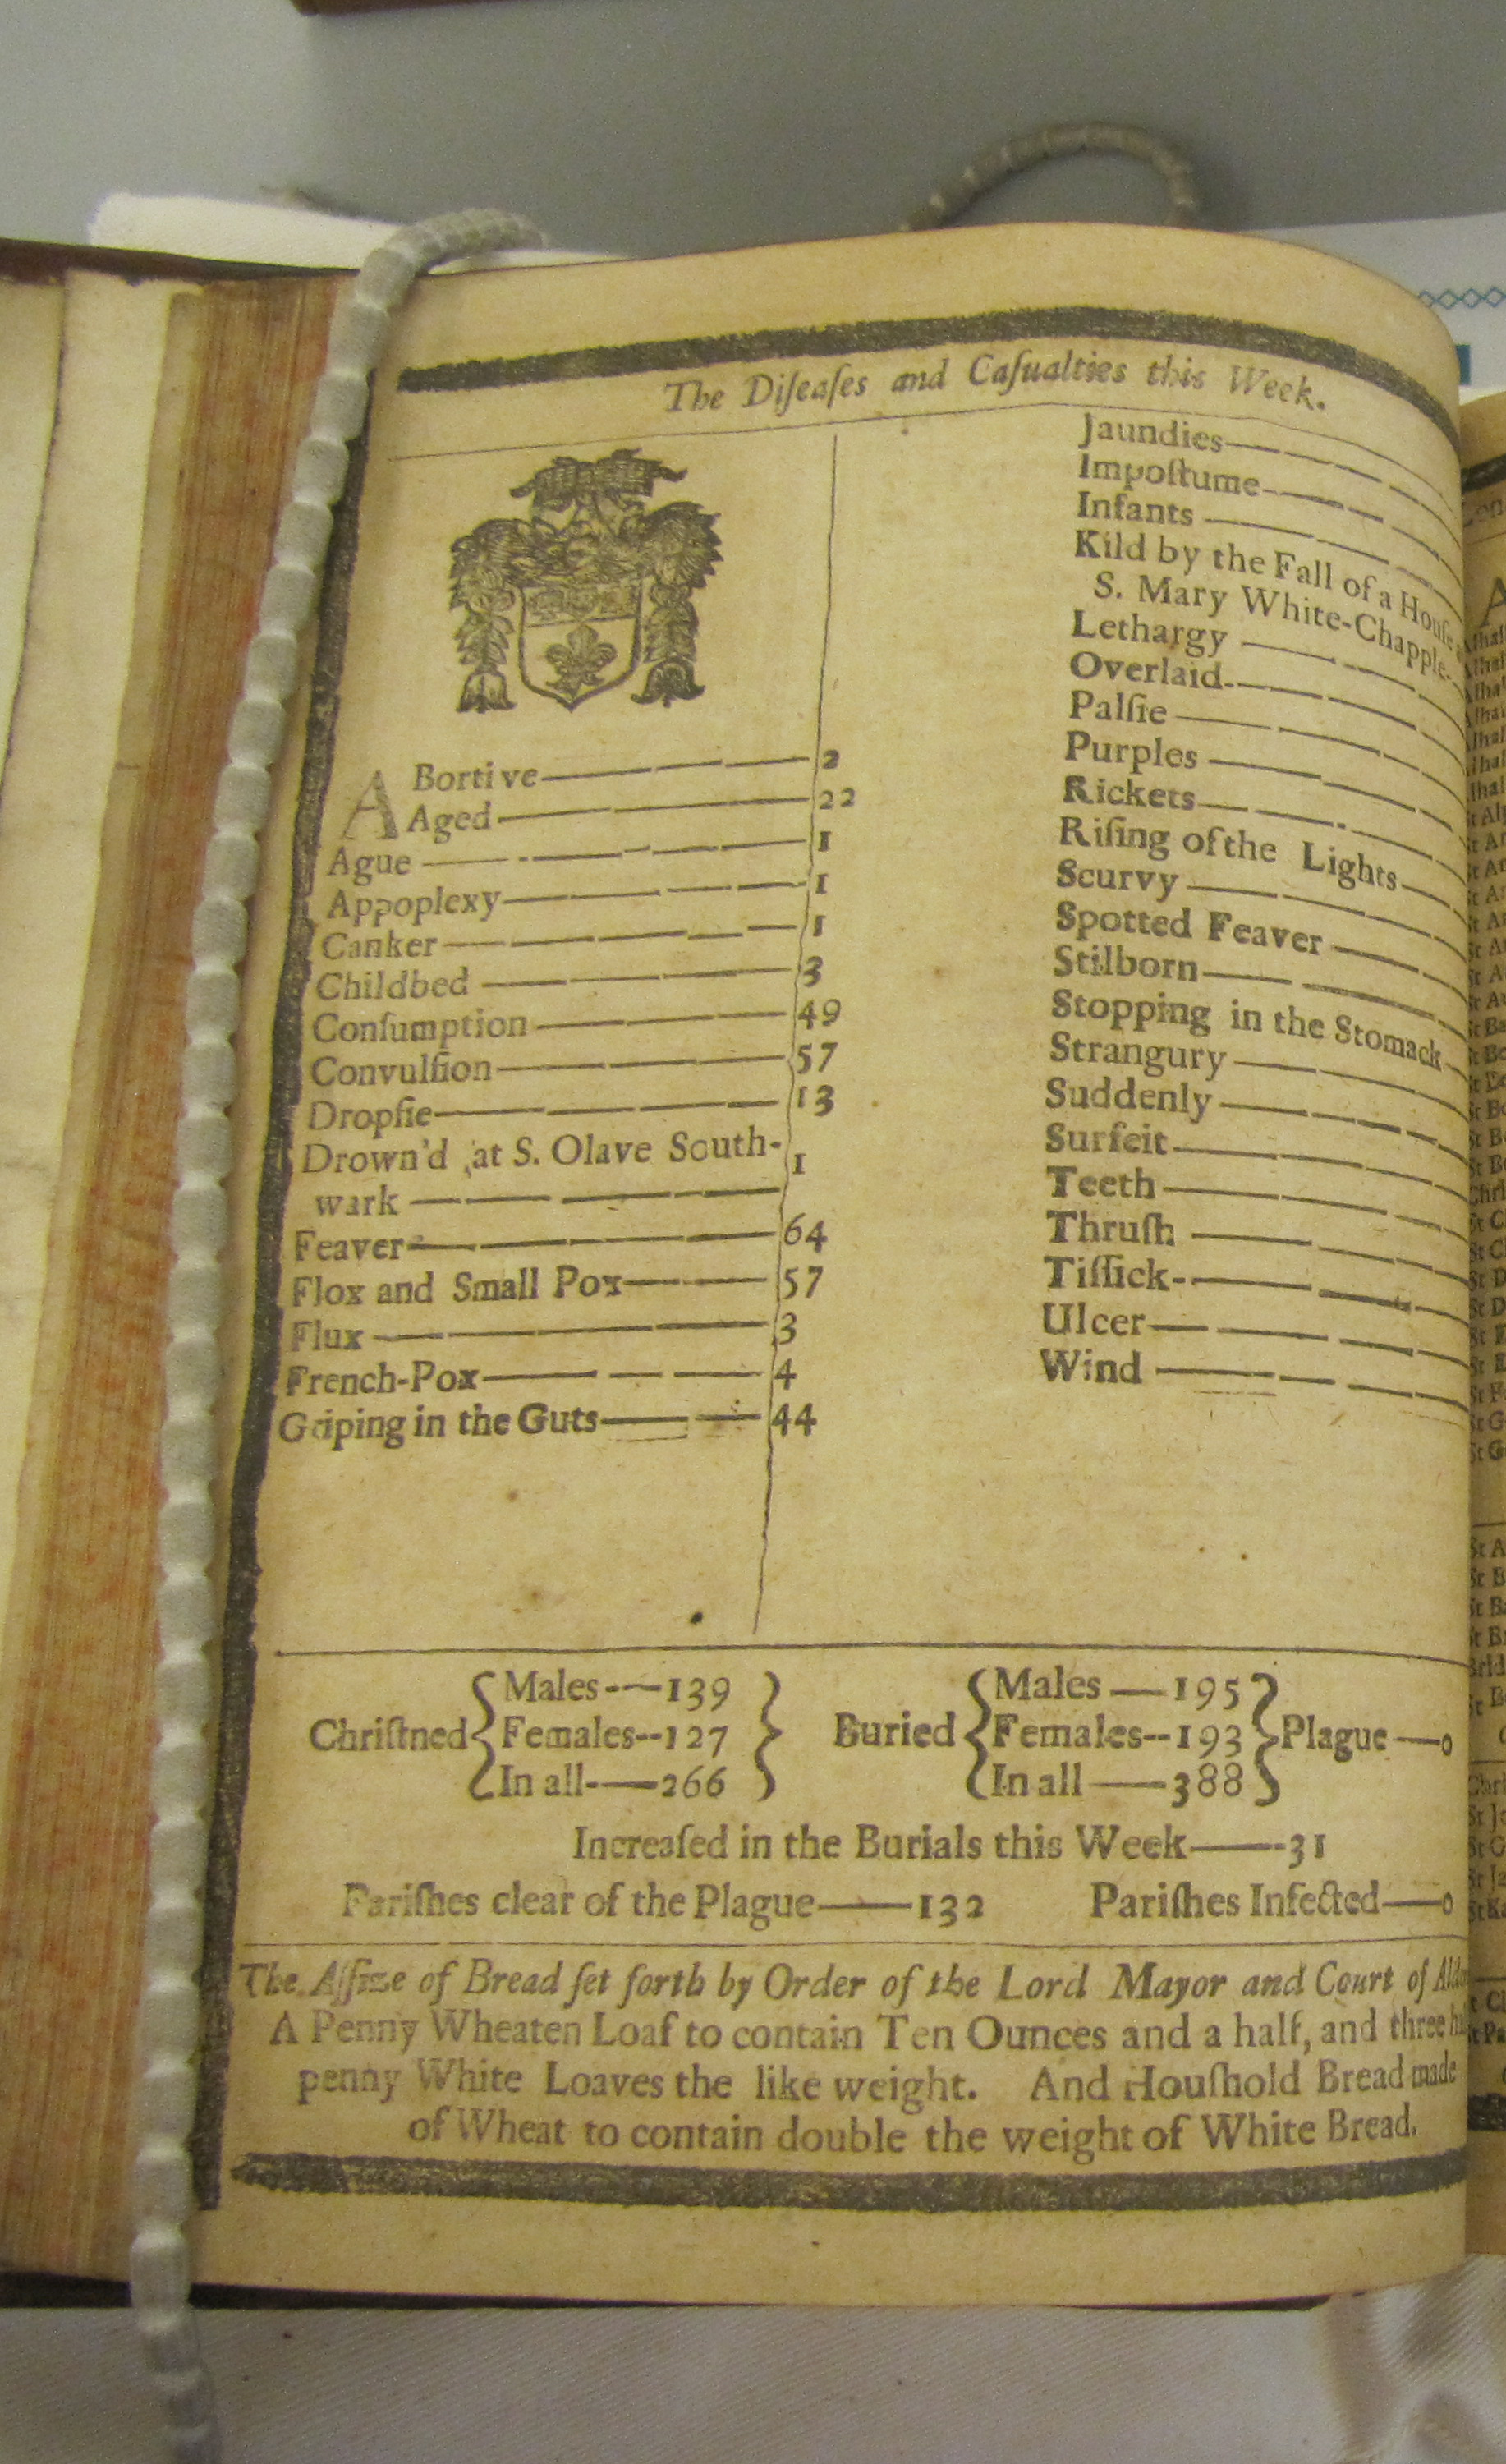 The Diſeaſes and Caſualties this Week.
ABortive 2
Aged 22
Ague 1
Appoplexy 1
Canker 1
Childbed 3
Conſumption 49
Convulſion 57
Dropſie 13
Drown'd at S. Olave South- 1
wark
Feaver 64
Flox and Small Pox 57
Flux 3
French-Pox 4
Griping in the Guts 44
Jaundies
Impoſtume
Infants
Kild by the Fall of a Houſe
S. Mary White-Chapple
Lethargy
Overlaid
Palſie
Purples
Rickets
Riſing of the Lights
Scurvy
Spotted Feaver
Stilborn
Stopping in the Stomack
Strangury
Suddenly
Surfeit
Teeth
Thruſh
Tiſſick
Ulcer
Wind
Chriſtned { Males 139 Females 127 In all 266 }
Buried { Males 195 Females 193 In all 388 } Plague 0
Increaſed in the Burials this Week 31
Pariſhes clear of the Plague 132 Pariſhes Infected 0
The Aſſize of Bread ſet forth by Order of the Lord Mayor and Court of
A Penny Wheaten Loaf to contain Ten Ounces and a half, and three
penny White Loaves the like weight. And Houſhold Bread made
of Wheat to contain double the weight of White Bread.